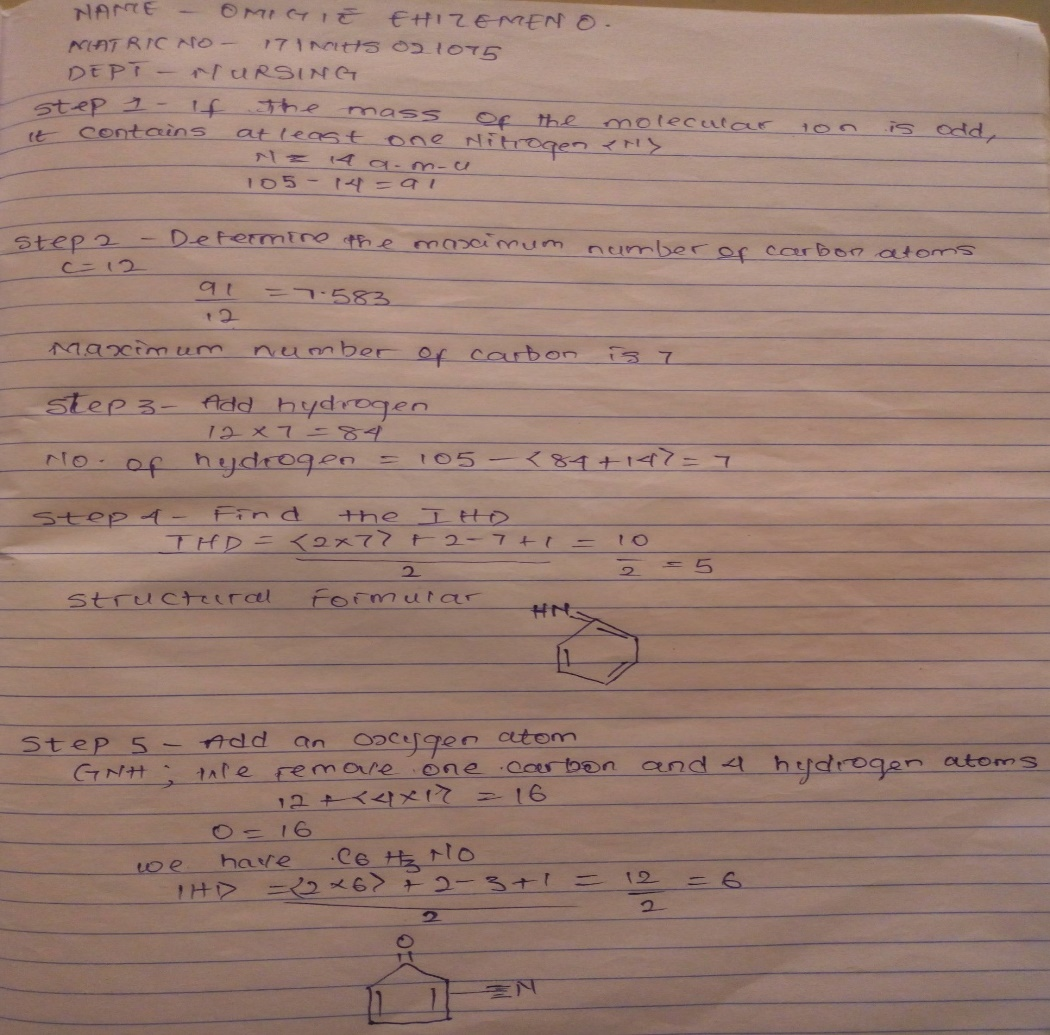 NAME - OMIGIE EHIZEMEN O.
MATRIC NO - 17/MHS02/075
DEPT - NURSING
Step 1 - If the mass of the molecular ion is odd,
it contains at least one Nitrogen <N>
N = 14 a.m.u
105 - 14 = 91
Step 2 - Determine the maximum number of carbon atoms
C = 12
91/12 = 7.583
Maximum number of carbon is 7
Step 3 - Add hydrogen
12 x 7 = 84
No. of hydrogen = 105 - <84 + 14> = 7
Step 4 - Find the IHD
IHD = <2x7> + 2 - 7 + 1 / 2 = 10/2 = 5
Structural Formular
HN
Step 5 - Add an oxygen atom
; we remove one carbon and 4 hydrogen atoms
12 + <4x1> = 16
O = 16
we have C6H3NO
IHD = <2x6> + 2 - 3 + 1 / 2 = 12/2 = 6
O
≡N